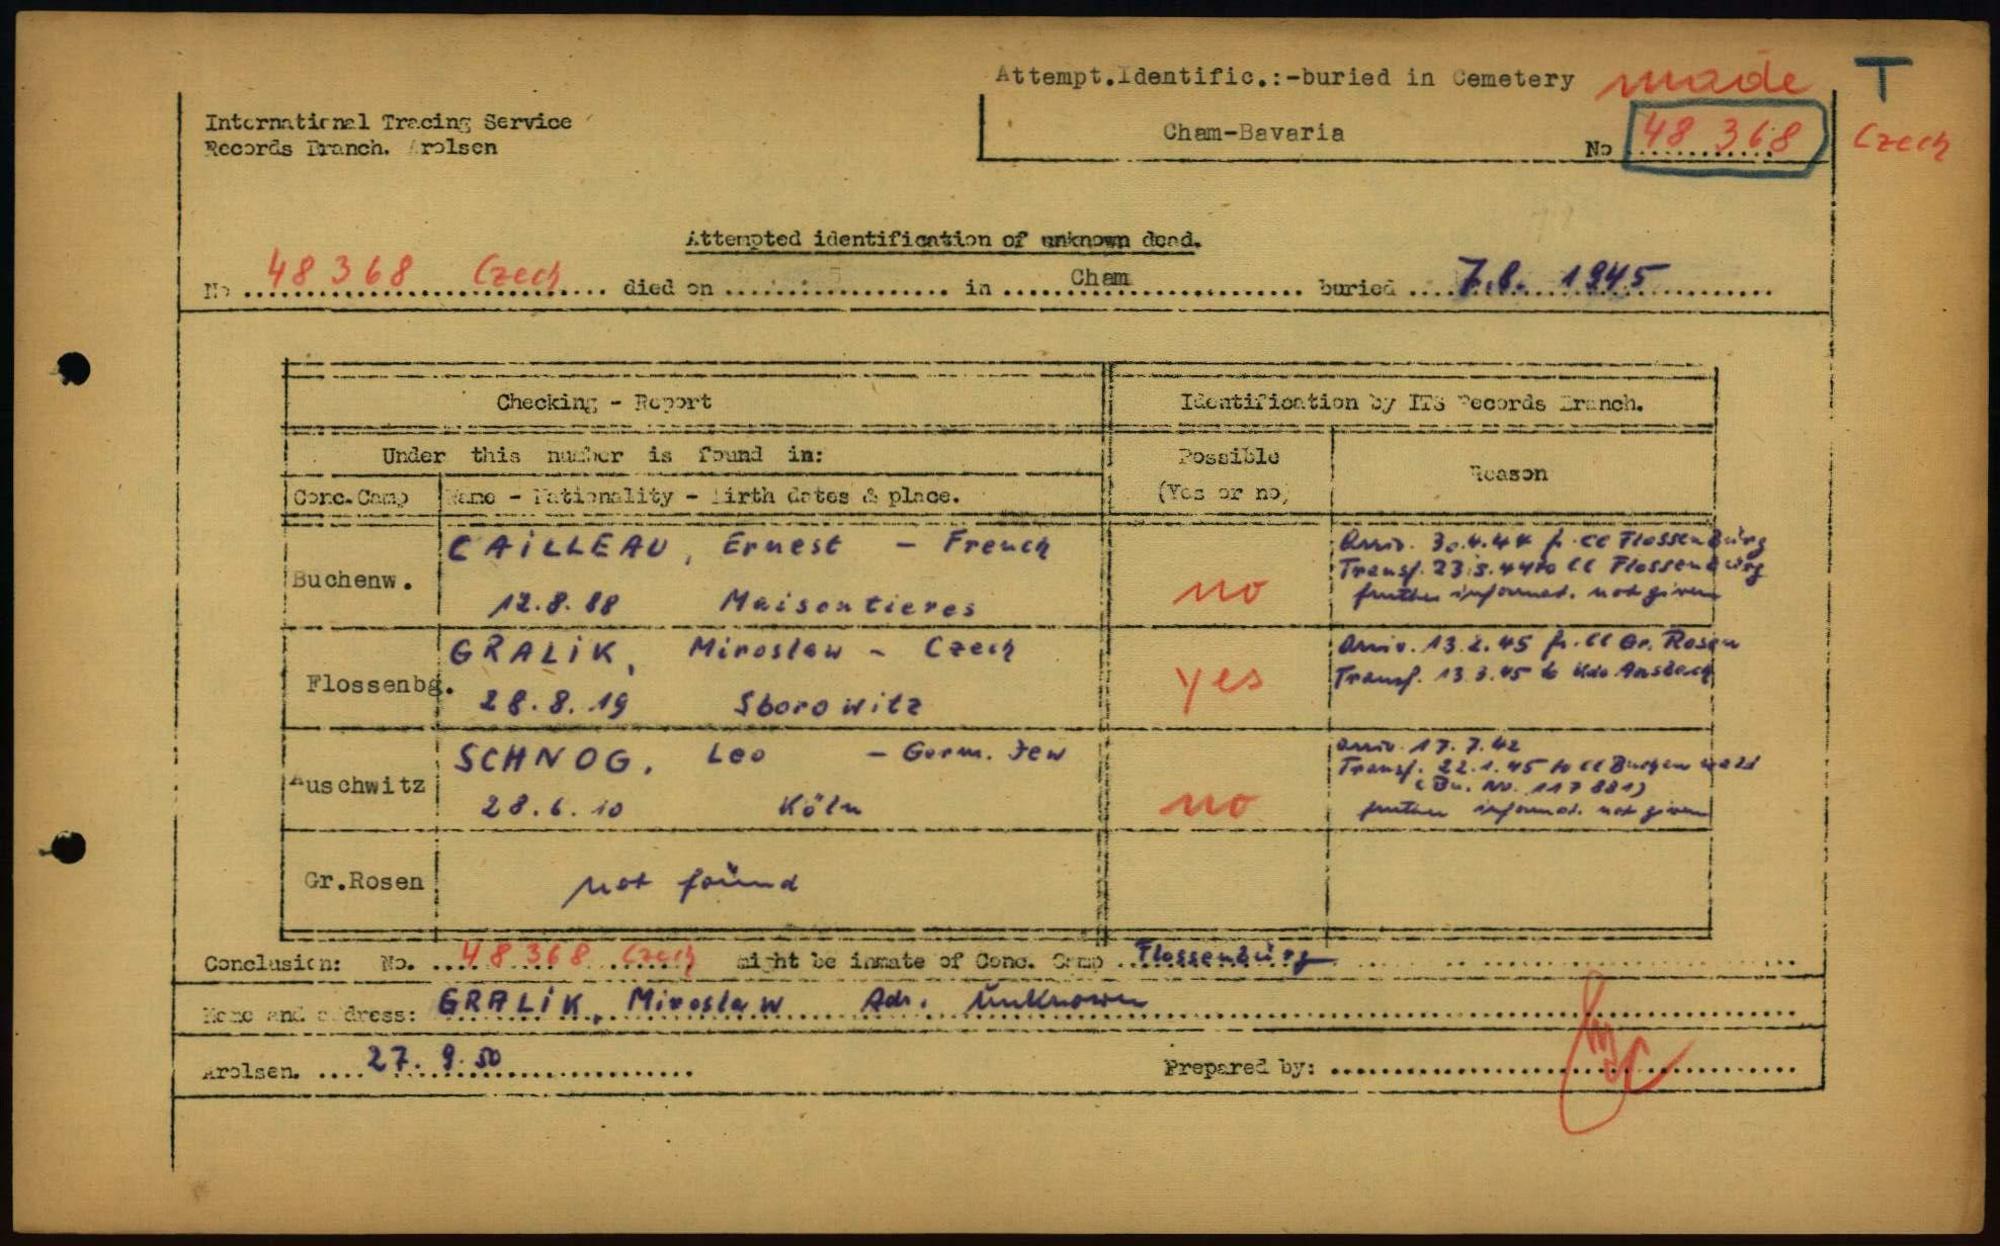 Attempt.Identific.:-buried in Cemetery made T
International Tracing Service
Cham-Bavaria No 48 368 Czech
Records Branch. Arolsen
Attempted identification of unknown dead.
No 48 368 Czech died on in Cham buried 7.8. 1945
Checking - Report Identification by ITS Records Branch.
Under this number is found in: Possible (Yes or no) Reason
Conc.Camp Name - Nationality - Birth dates & place.
CAILLEAU, Ernest - French Arriv. 30.4.44 fr. CC Flossenbürg
Buchenw. no Transf. 23.5.44 to CC Flossenbürg
12.8.88 Maisontieres further informat. not given
GRALIK, Miroslaw - Czech Arriv. 13.2.45 fr. CC Gr. Rosen
Flossenbg. yes Transf. 13.3.45 to Kdo Ansbach
28.8.19 Sborowitz
SCHNOG, Leo - Germ. Jew Arriv. 17.7.42
Transf. 22.1.45 to CC Buchenwald
Auschwitz no (Bu. No. 117 881)
28.6.10 Köln further informat. not given
Gr.Rosen not found
Conclusion: No. 48 368 Czech might be inmate of Conc. Camp Flossenbürg
Name and address: GRALIK, Miroslaw Adr. Unknown
Arolsen. 27. 9. 50 Prepared by: